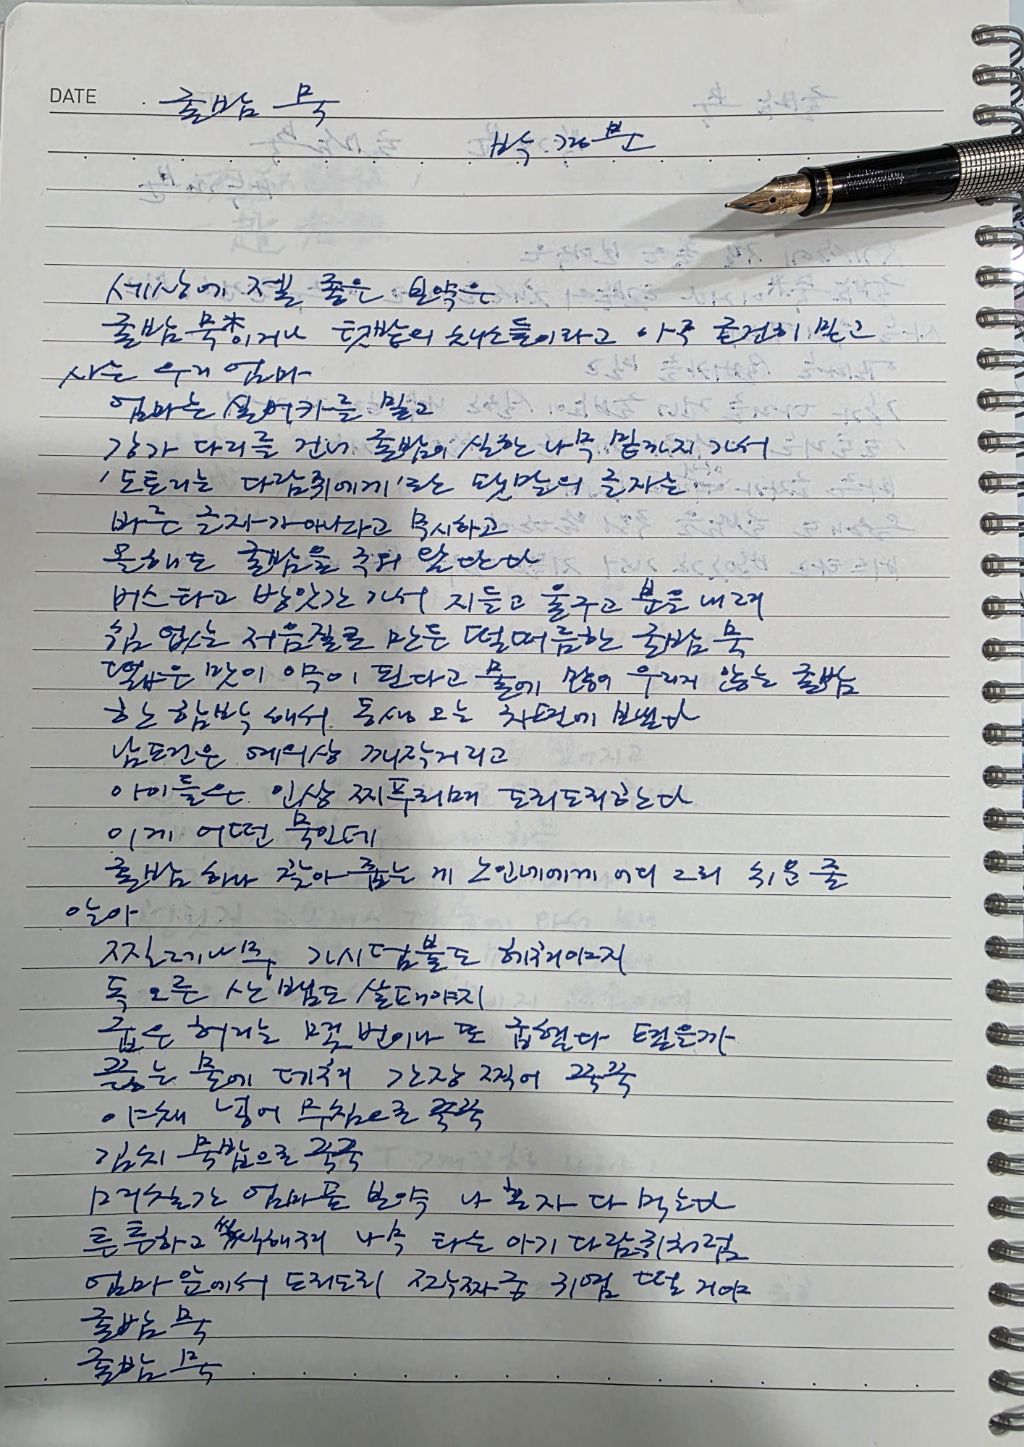 DATE
굴밤 묵
박경분
세상에 제일 좋은 보약은
굴밤 묵이거나 텃밭의 채소들이라고 아주 굳건히 믿고
사는 우리 엄마
엄마는 실버카를 밀고
강가 다리를 건너 굴밤이 실한 나무 밑까지 가서
'도토리는 다람쥐에게'라는 팻말의 글자는
바른 글자가 아니라고 묵시하고
올해도 굴밤을 주워 왔단다
버스타고 방앗간 가서 지들고 울구고 분을 내려
힘 없는 저음질로 만든 떨떠름한 굴밤 묵
떫은 맛이 약이 된다고 물에 많이 우리지 않는 굴밤
한 함박 해서 동생 오는 차편에 보냈다
남편은 예의상 끼적거리고
아이들은 인상 찌푸리며 도리도리한다
이게 어떤 묵인데
굴밤 하나 찾아 줍는 게 노인네에게 어디 그리 쉬운 줄
알아
찔레나무 가시덤불도 헤쳐야지
독 오른 산뱀도 살펴야지
굽은 허리는 몇 번이나 또 굽혔다 폈을까
끓는 물에 데쳐 간장 찍어 꾹꾹
야채 넣어 무침으로 꾹꾹
김치 묵밥으로 꾹꾹
며칠간 엄마표 보약 나 혼자 다 먹는다
튼튼하고 싹싹해져 나무 타는 아기 다람쥐처럼
엄마 앞에서 도리도리 짝짜꿍 귀염 떨 거야
굴밤 묵
굴밤 묵